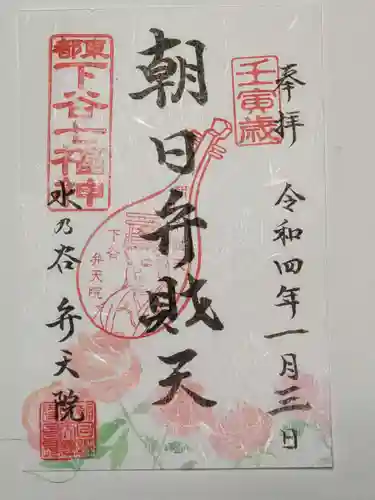 奉拝 令和四年一月三日
壬寅歳
朝日弁財天
下谷
弁天院
東都
下谷七福神
水乃谷 弁天院